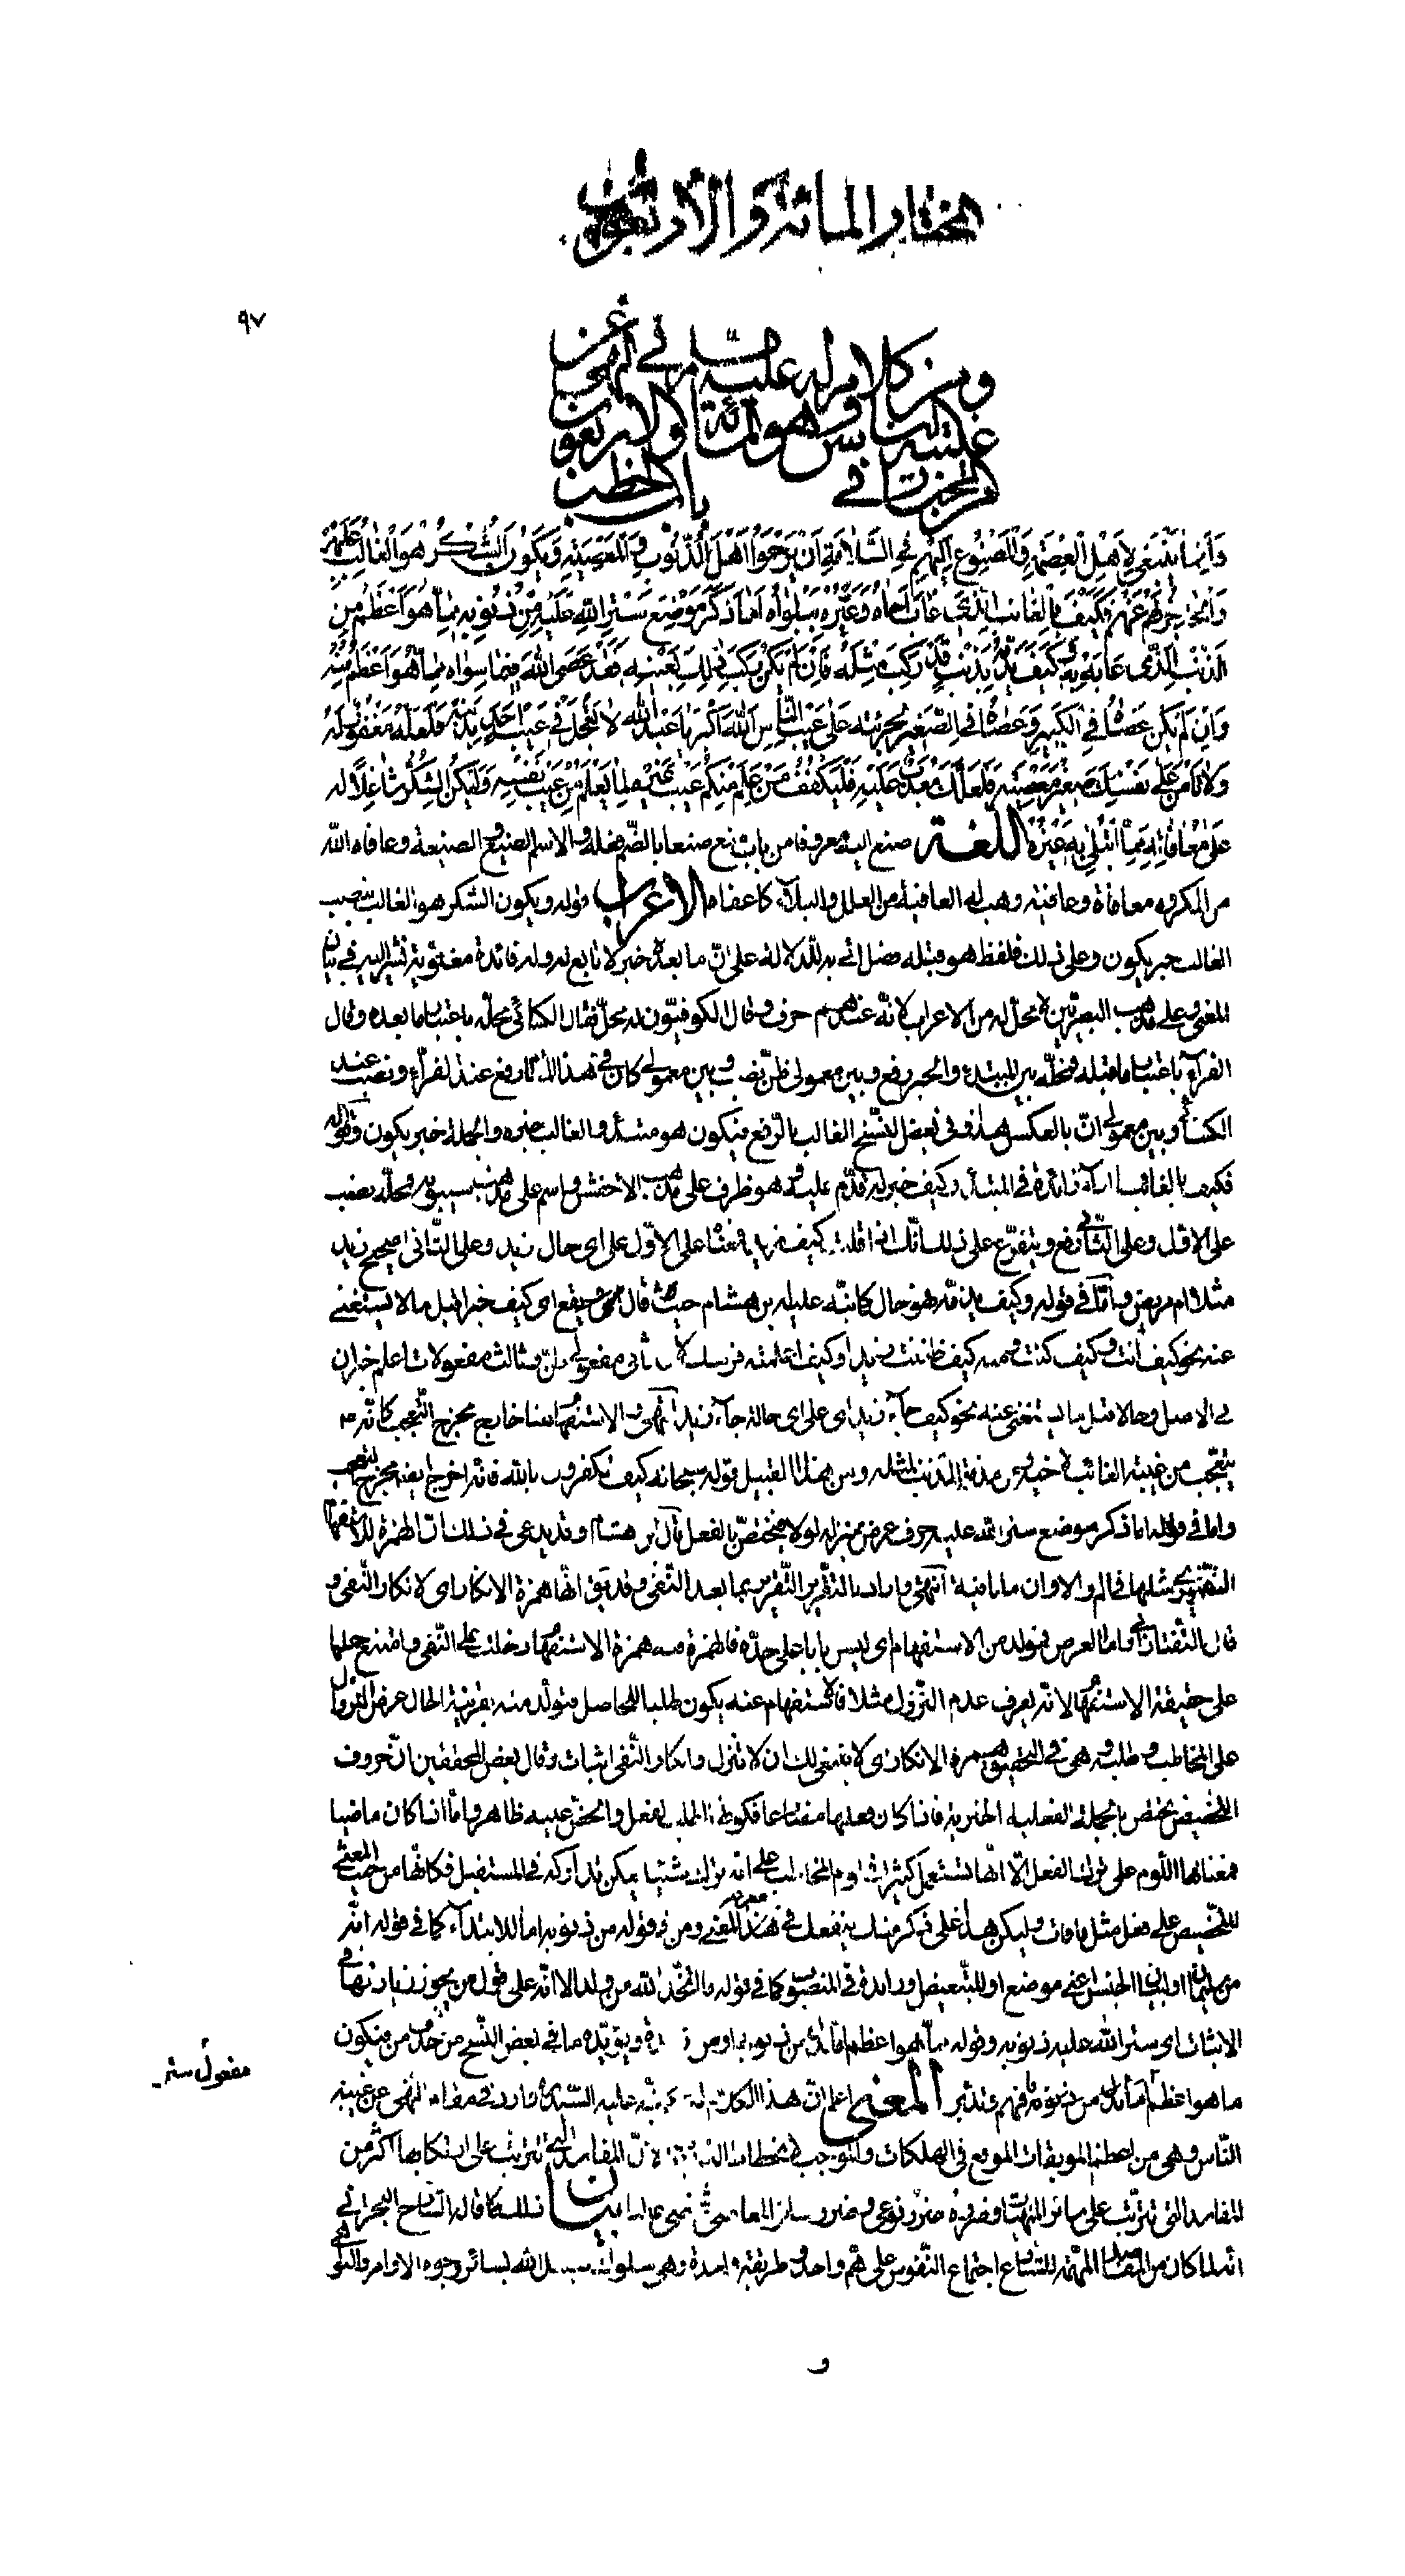 المختار المائة والاربعون
٩٧
ومن كلام له عليه السلام في النهي عن
غيبة الناس وهو المائة والاربعون
من المختار في باب الخطب
وَاِنَّما يَنْبَغي لِاَهْلِ الْعِصْمَةِ وَالْمَصْنُوعِ اِلَيْهِمْ فِي السَّلامَةِ اَنْ يَرْحَمُوا اَهْلَ الذُّنُوبِ وَالْمَعْصِيَةِ وَيَكُونَ الشُّكْرُ هُوَ الْغالِبَ عَلَيْهِمْ
وَالْحاجِزَ لَهُمْ عَنْهُمْ فَكَيْفَ بِالْغائِبِ الَّذي غابَ اَخاهُ وَعَيَّرَهُ بِبَلْواهُ اَما ذَكَرَ مَوْضِعَ سَتْرِ اللهِ عَلَيْهِ مِنْ ذُنُوبِه مِمّا هُوَ اَعْظَمُ مِنَ
الذَّنْبِ الَّذي عابَهُ بِه وَكَيْفَ يَذُمُّهُ بِذَنْبٍ قَدْ رَكِبَ مِثْلَهُ فَاِنْ لَمْ يَكُنْ رَكِبَ ذلِكَ بِعَيْنِه فَقَدْ عَصَى اللهَ فيما سِواهُ مِمّا هُوَ اَعْظَمُ مِنْهُ
وَاِنْ لَمْ يَكُنْ عَصاهُ فِي الْكَبيرِ وَعَصاهُ فِي الصَّغيرِ لَجُرْئَتُهُ عَلى عَيْبِ النّاسِ اَكْبَرُ يا عَبْدَ اللهِ لا تَعْجَلْ في عَيْبِ اَحَدٍ بِذَنْبِه فَلَعَلَّهُ مَغْفُورٌ لَهُ
وَلا تَأْمَنْ عَلى نَفْسِكَ صَغيرَ مَعْصِيَةٍ فَلَعَلَّكَ مُعَذَّبٌ عَلَيْهِ فَلْيَكْفُفْ مَنْ عَلِمَ مِنْكُمْ عَيْبَ غَيْرِه لِما يَعْلَمُ مِنْ عَيْبِ نَفْسِه وَلْيَكُنِ الشُّكْرُ شاغِلاً لَهُ
عَلى مُعافاتِه مِمَّا ابْتُلِيَ بِه غَيْرُهُ اللغة صنع اليه معروفا من باب منع صنعا بالضم فعله والاسم الصنيع والصنيعة وعافاه الله
من المكروه معافاة وعافية وهب له العافية من العلل والبلاء كاعفاه الاعراب قوله ويكون الشكر هو الغالب بنصب
الغالب خبر يكون وعلى ذلك فلفظ هو قبله فصل اتى به للدلالة على ان ما بعده خبر لا تابع له وله فائدة معنوية نشير اليه في بيان
المعنى وعلى مذهب البصريين لا محل له من الاعراب لانه عندهم حرف وقال الكوفيون له محل فقال الكسائي محله باعتبار ما بعده وقال
الفراء باعتبار ما قبله فمحله بين المبتدء والخبر رفع وبين معمولى ظن نصب وبين معمولى كان كما في هذا المقام رفع عند الفراء ونصب عند
الكسائي وبين معمولى ان بالعكس هذا وفي بعض النسخ الغالب بالرفع فيكون هو مبتدأ والغالب خبره والجملة خبر يكون وقوله
فكيف بالغائب الباء زائدة في المبتدأ وكيف خبر له قدم عليه وهو ظرف على مذهب الاخفش واسم على مذهب سيبويه فمحله نصب
على الاول وعلى الثاني رفع ويتفرع على ذلك انك اذا قلت كيف زيد فمعناه على الاول على اي حال زيد وعلى الثاني اصحيح زيد
مثلا ام مريض واما في قوله وكيف يذمه فهو حال كما نبه عليه ابن هشام حيث قال ويقع اي كيف خبرا قبل ما لا يستغنى
عنه نحو كيف انت وكيف كنت ومنه كيف ظننت زيدا وكيف اعلمته فرسك لان ثاني مفعولى ظن وثالث مفعولات اعلم خبران
في الاصل وحالا قبل ما يستغنى عنه نحو كيف جاء زيد اي على اي حالة جاء زيد انتهى والاستفهام هنا خارج مخرج التعجب كانه
يتعجب من غيبة الغائب لاخيه ومن مذمة المذنب لمثله ومن هذا القبيل قوله سبحانه كيف تكفرون بالله فانه اخرج ايضا مخرج التعجب
واما في قوله اما ذكر موضع ستر الله عليه حرف عرض بمنزلة لولا فيختص بالفعل قال ابن هشام وقد يدعى في ذلك ان الهمزة للاستفهام
التقريري مثلها في الم والا وان ما نافية انتهى واراد بالتقرير التقرير بما بعد النفي وقد يق انها همزة الانكار اي لانكار النفي و
قال التفتازاني واما العرض فمولد من الاستفهام اي ليس بابا على حدة فالهمزة فيه همزة الاستفهام دخلت على النفي وامتنع حملها
على حقيقة الاستفهام لانه يعرف عدم النزول مثلا فالاستفهام عنه يكون طلبا للحاصل فتولد منه بقرينة الحال عرض النزول
على المخاطب وطلبه وهي في التحقيق همزة الانكار اي لا ينبغي لك ان لا تنزل وانكار النفي اثبات وقال بعض المحققين ان حروف
التحضيض تختص بالجملة الفعلية الخبرية فاذا كان فعلها مضارعا فكونها لطلب الفعل والحض عليه ظاهر واما اذا كان ماضيا
فمعناها اللوم على ترك الفعل الا انها تستعمل كثيرا في لوم المخاطب على انه ترك شيئا يمكن تداركه في المستقبل فكانها من حيث المعنى
للتحضيض على فعل مثل ما فات وليكن هذا على ذكر منك ينفعك في معرفة هذا المعنى ومن في قوله من ذنوبه اما للابتداء كما في قوله انه
من سليمان او لبيان الجنس اعني موضع او للتبعيض او زائدة في المنصوب كما في قوله ما اتخذ الله من ولد الا انه على قول من يجوز زيادتها في
الاثبات اي ستر الله عليه ذنوبه وقوله مما هو اعظم اما بدل من ذنوبه او من ويؤيده ما في بعض النسخ من حذف من فيكون
مفعول ستر
ما هو اعظم اما بدل من ذنوبه فافهم وتدبر المعنى اعلم ان هذا الكلام كما نبه عليه السيد وارد في مقام النهي عن غيبة
الناس وهي من اعظم الموبقات الموقع في الهلكات والموجب لانحطاط لان المفاسد التي تترتب على ارتكابها اكثر من
المفاسد التي تترتب على ساير المنهيات وضرره ضرر نوعي وضرر ساير المعاصي شخصي غالبا بيان ذلك ما قاله الشارح البحراني
انه لما كان من المقاصد المهمة للشارع اجتماع النفوس على هم واحد وطريقة واحدة وهي سلوك سبيل الله بسائر وجوه الاوامر والنواهي
و